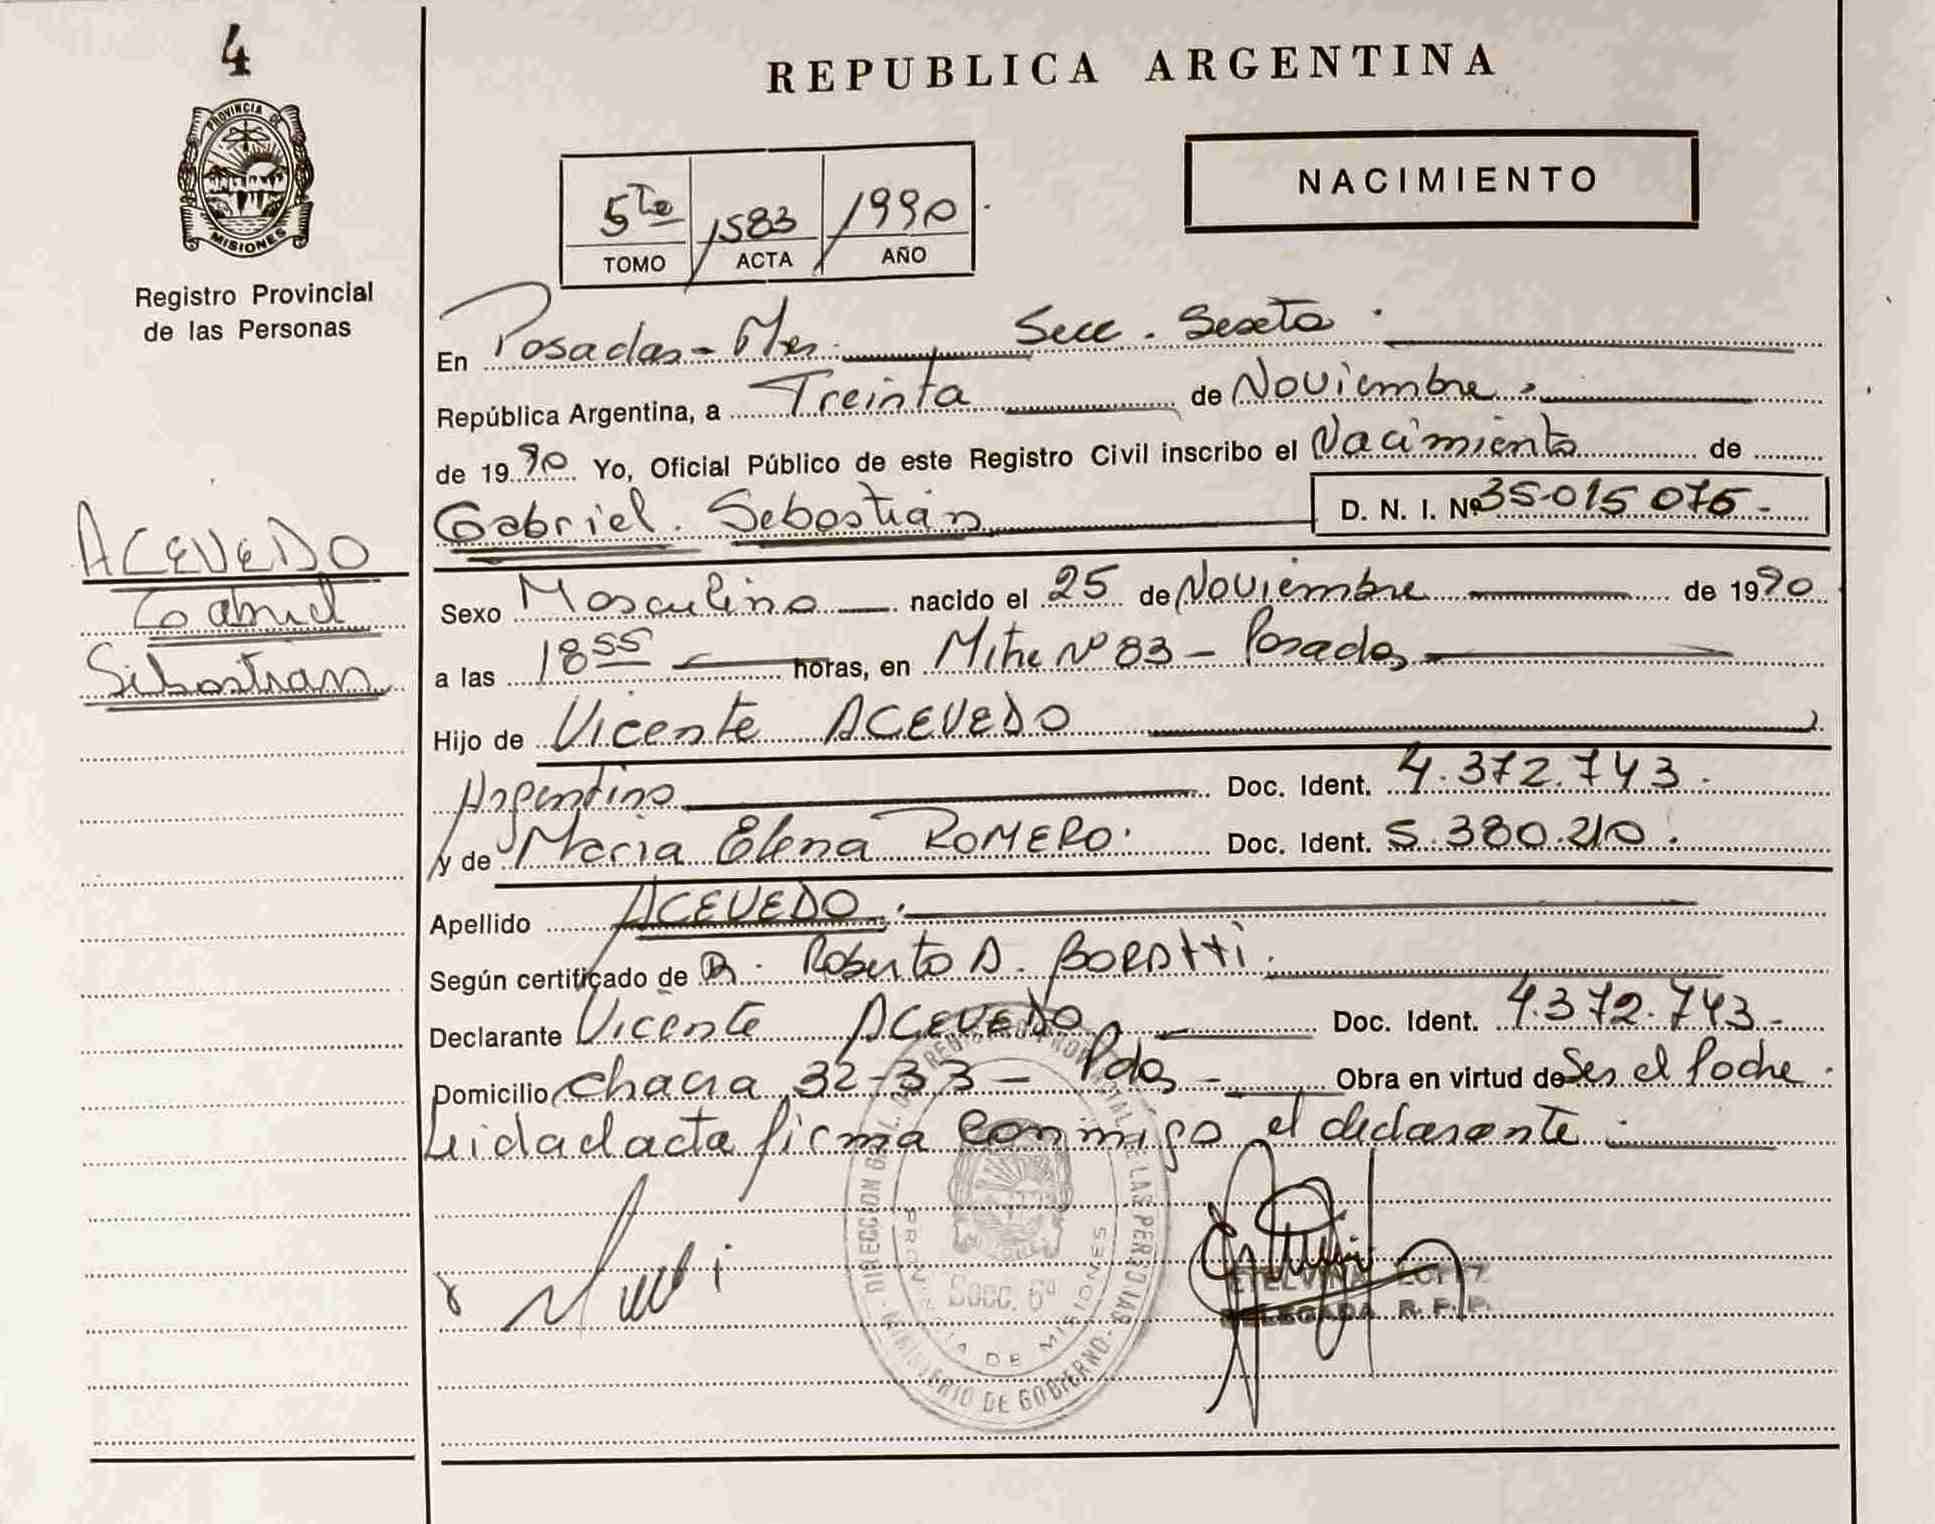 4
PROVINCIA DE
MISIONES
Registro Provincial
de las Personas
REPUBLICA ARGENTINA
NACIMIENTO
5to 1583 1990
TOMO ACTA AÑO
En Posadas - Mnes. Secc. Sexta.
República Argentina, a Treinta de Noviembre.
de 1990 Yo, Oficial Público de este Registro Civil inscribo el Nacimiento de
Gabriel Sebastián D. N. I. Nº 35.015.076.-
ACEVEDO
Gabriel
Sebastian
Sexo Masculino nacido el 25 de Noviembre de 1990
a las 18 55 horas, en Mitre Nº 83 - Posadas
Hijo de Vicente ACEVEDO
Argentino Doc. Ident. 4.372.743.
y de Maria Elena ROMERO. Doc. Ident. 5.380.210.
Apellido ACEVEDO.
Según certificado de Dr. Roberto A. BORATTI.
Declarante Vicente ACEVEDO Doc. Ident. 4.372.743.-
Domicilio Chacra 32-33 - Pdas - Obra en virtud de Ser el Padre.
Leida el acta firma conmigo el declarante.
DIRECCION GRAL. DE REGISTRO PROVINCIAL DE LAS PERSONAS - MINISTERIO DE GOBIERNO -
PROVINCIA DE MISIONES
Secc. 6ª
ETELVINA LOPEZ
DELEGADA R. P. P.